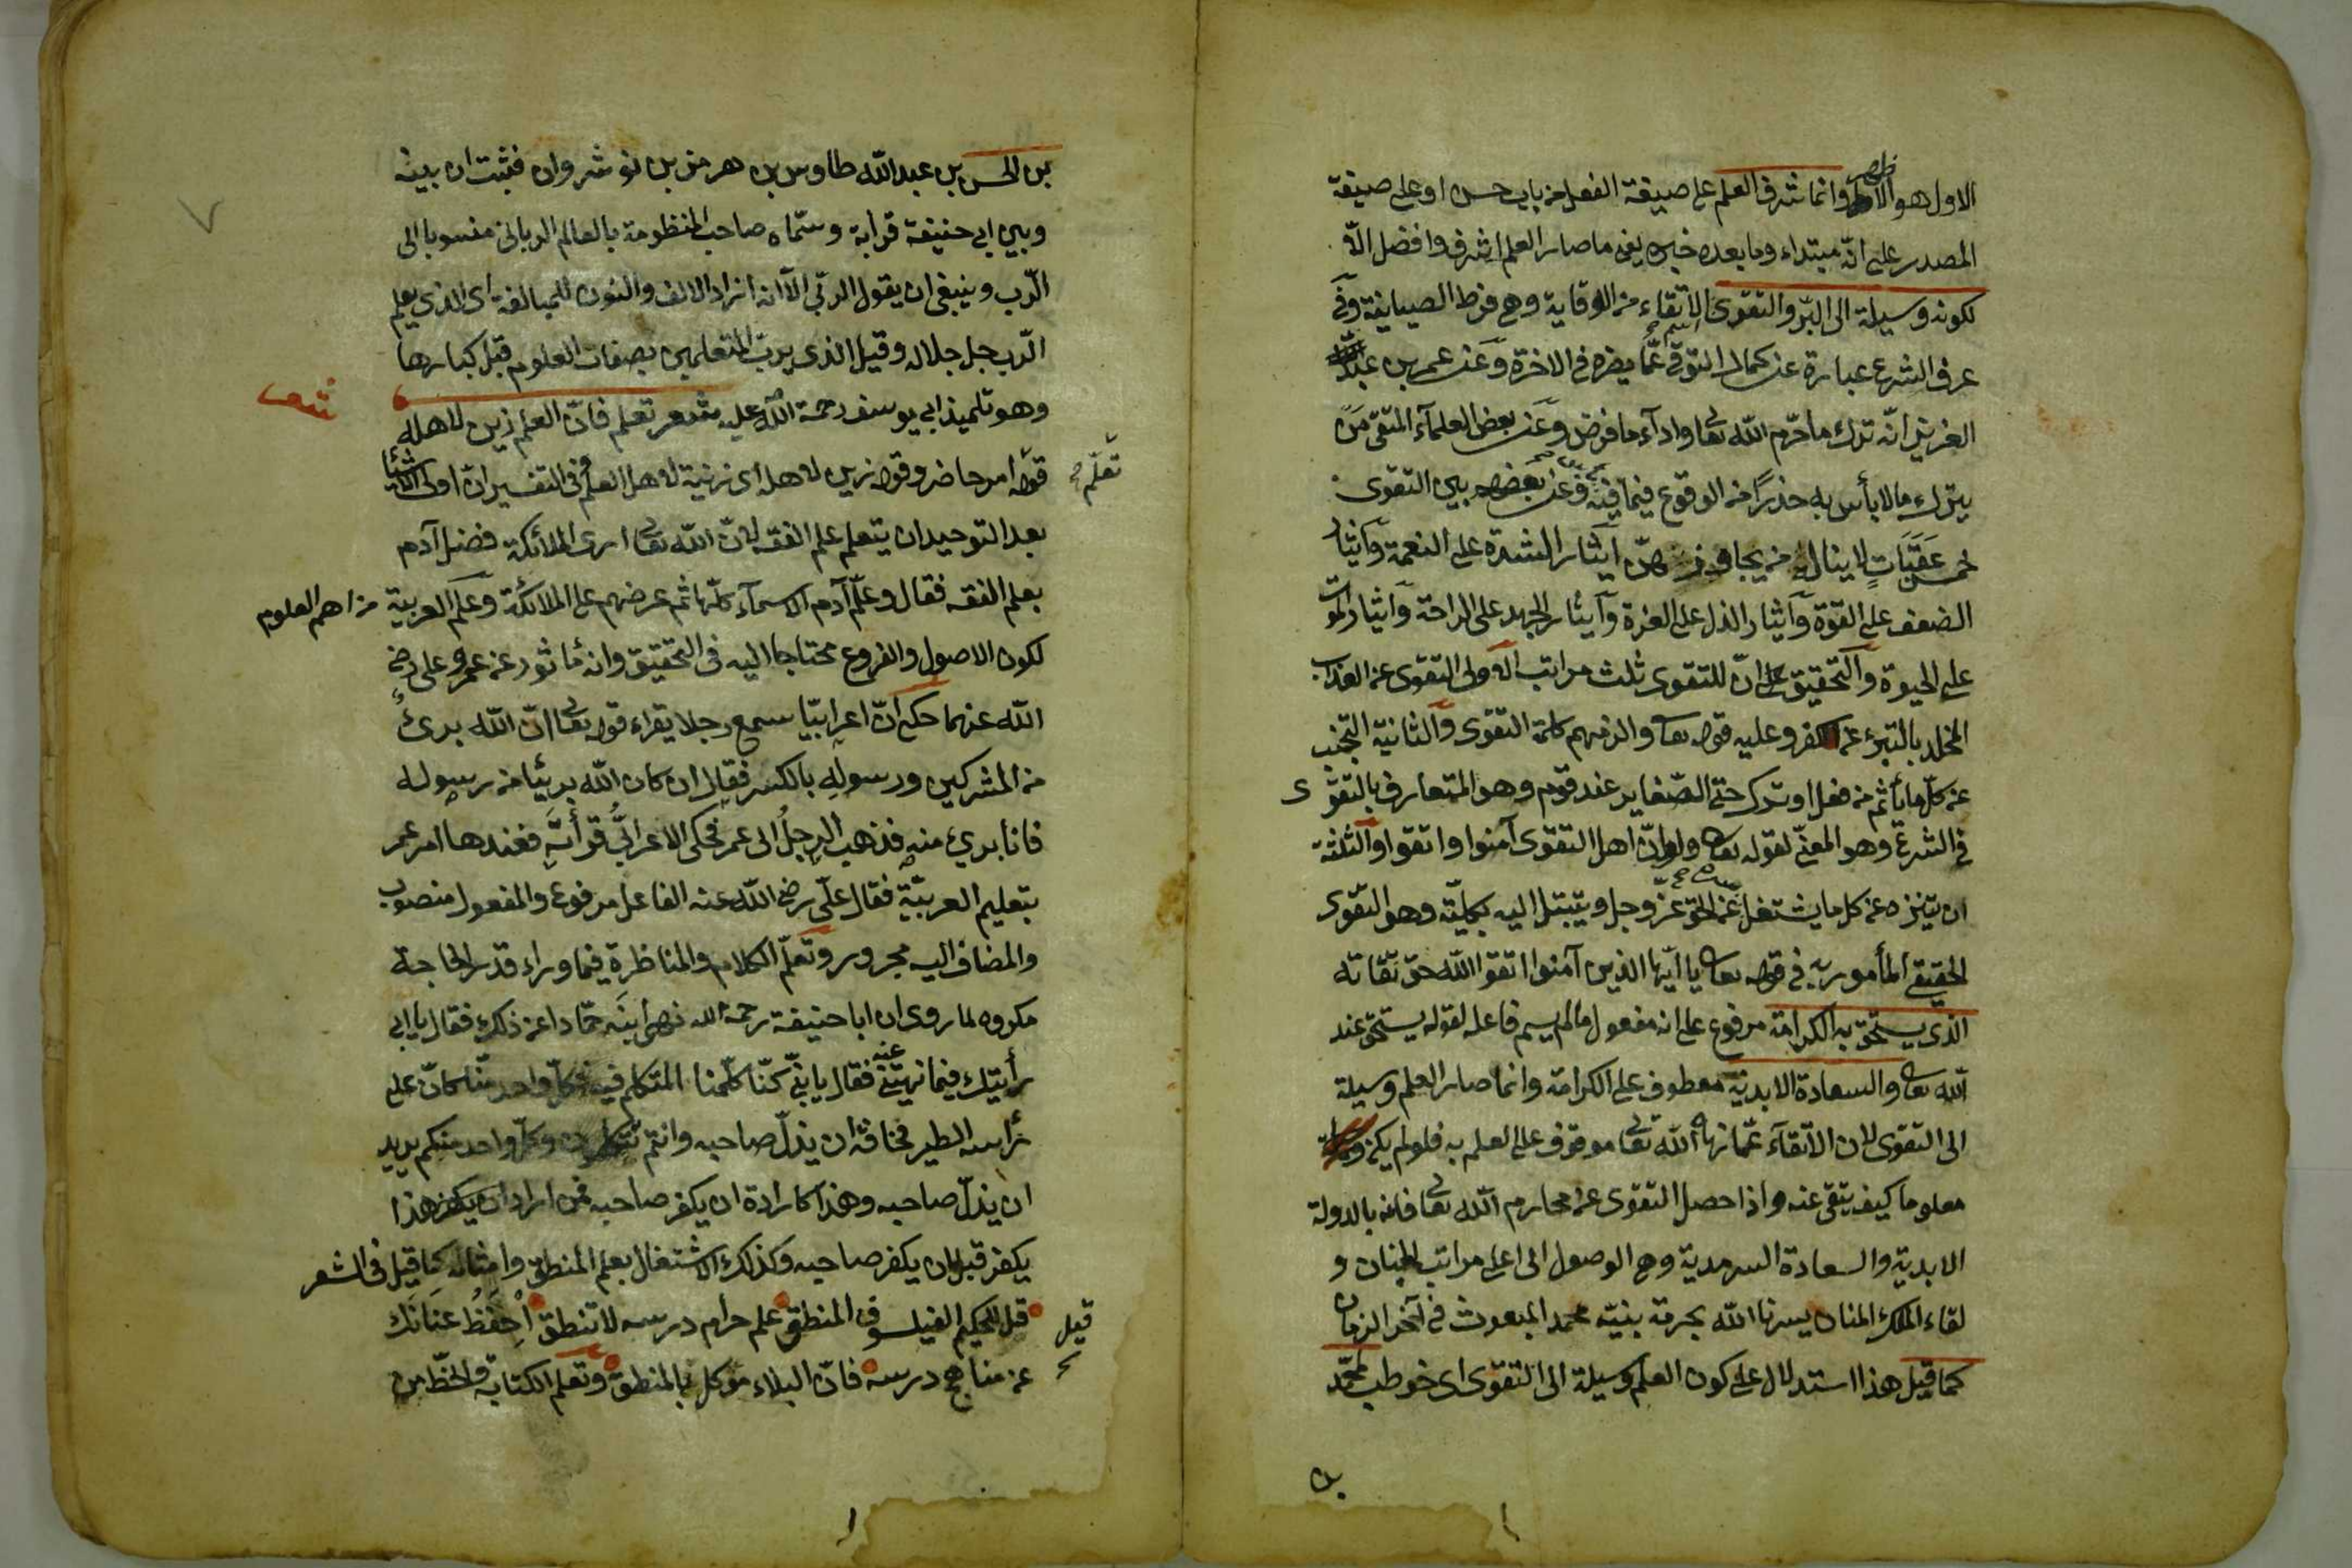 الاول هو الاظهر وانما شرف العلم على صيغة الفعل من باب حسن او على صيغة
المصدر على انه مبتداء وما بعده خبره يعنى ما صار العلم اشرف وافضل الّا
لكونه وسيلة الى البرّ والتقوى الاتقاء من الوقاية وهى فرط الصيانة وفى
عرف الشرع عبارة عن كمال التوقى عمّا يضره فى الاخرة وعن عمر بن عبد
العزيز انّه ترك ما حرّم الله تعا واداء ما فرض وعن بعض العلمآء المتقى مَنْ
يترك مالا بأس به حذرًا من الوقوع فيما فيه وعن بعضهم بين التقوى
خمس عَقَبَاتٍ لا يناله من يجاوزهنّ ايثار الشدة على النعمة وآيثار
الضعف على القوّة وآيثار الذل على العزة وآيثار الجهد على الراحة وآيثار الموت
على الحيوة والتحقيق على انّ للتقوى ثلث مراتب الاولى التقوى عن العذاب
المخلد بالتبرّء عن الكفر وعليه قوله تعا والزمهم كلمة التقوى والثانية التجنب
عن كلّ ما يأثم من فعل او ترك حتى الصّغاير عند قوم وهو المتعارف بالتقوى
فى الشرع وهو المعنىّ لقوله تعا ولو انّ اهل التقوى آمنوا واتقوا والثلثة
ان يتنزه عن كل ما يشتغل عن الحق عزّ وجل ويتبتل اليه بكليّته وهو التّقوى
الحقيقى المأمور به فى قوله تعا يا ايّها الذين آمنوا اتقوا الله حق تقاته
الذى يستحق به الكرامة مرفوع على انه مفعول مالم يسم فاعله لقوله يستحق عند
الله تعا والسعادة الابدية معطوف على الكرامة وانما صار العلم وسيلة
الى التقوى لان الاتقآء عمّا نهاه الله تعا موقوف على العلم به فلو لم يكن
معلوما كيف يتقى عنه واذا حصل التقوى عن محارم الله تعا فاز بالدولة
الابدية والسعادة السرمدية وهى الوصول الى اعلى مراتب الجنان و
لقاء الملك المنان يسرنا الله بحرمة نبيّه محمد المبعوث فى آخر الزمان
كما قيل هذا استدلال على كون العلم وسيلة الى التقوى اى خوطب لمحمّد
بن
بن الحسن بن عبد الله طاوس بن هرمز بن نوشروان فثبت ان بينه
وبين ابى حنيفة قرابة وسمّاه صاحب المنظومة بالعالم الربانى منسوبا الى
الرّب وينبغى ان يقول الربّى الّا انه ازاد الالف والنون للمبالغة اى الذى يعلم
الرّب جل جلاله وقيل الذى يربّ المتعلمين بصغار العلوم قبل كبارها
وهو تلميذ ابى يوسف رحمة الله عليه شعر تعلم فانّ العلم زين لاهله
تعلّم
قوله امر حاضر وقوله زين لاهله اى زينة لاهل العلم وفى التفسير انّ اولى الاشياء
بعد التوحيد ان يتعلم علم الفقه لانّ الله تعا ارى الملائكة فضل آدم
بعلم الفقه فقال وعلّم آدم الاسمآء كلّها ثم عرضهم على الملائكة وعلم العربية من اهم العلوم
لكون الاصول والفروع محتاجا اليه فى التحقيق وانه مأثور عن عمر وعلى رضى
الله عنهما حكى انّ اعرابيّا سمع رجلا يقراء قوله تعا انّ الله برئٌ
من المشركين ورسولِه بالكسر فقال ان كان الله بريئا من رسوله
فانا برئ منه فذهب الرجلُ الى عمر فحكى الاعرابىُّ قرأتَه فعندها امر عمر
بتعليم العربيّة فقال علّى رضى الله عنه الفاعل مرفوع والمفعول منصوب
والمضاف اليه مجرور وتعلّم الكلام والمناظرة فيما وراء قدر الحاجة
مكروه لما روى ان ابا حنيفة رحمه الله نهى ابنَه حمّادا عن ذلك فقال يا ابى
رأيتك فيما نهيتنى عنه فقال يا بنىّ كنّا كلّمنا المتكلم فيه وكلّ واحد منّا كانّ على
رأسه الطير مخافة ان يذلّ صاحبه وانتم تتكلمون وكلّ واحد منكم يريد
ان يذلّ صاحبه وهذا كارادة ان يكفر صاحبه فمن اراد ان يكفر هذا
يكفر قبل ان يكفر صاحبه وكذلك الاشتغال بعلم المنطق وامثاله كما قيل فى الشعر
قيل
قل للحكيم الفيلسوف المنطق علم حرام درسه لا تنطق اْحفظْ عنانَك
عن مناهج درسه فانّ البلاء موكل بالمنطق وتعلم الكتابة والخطّ من